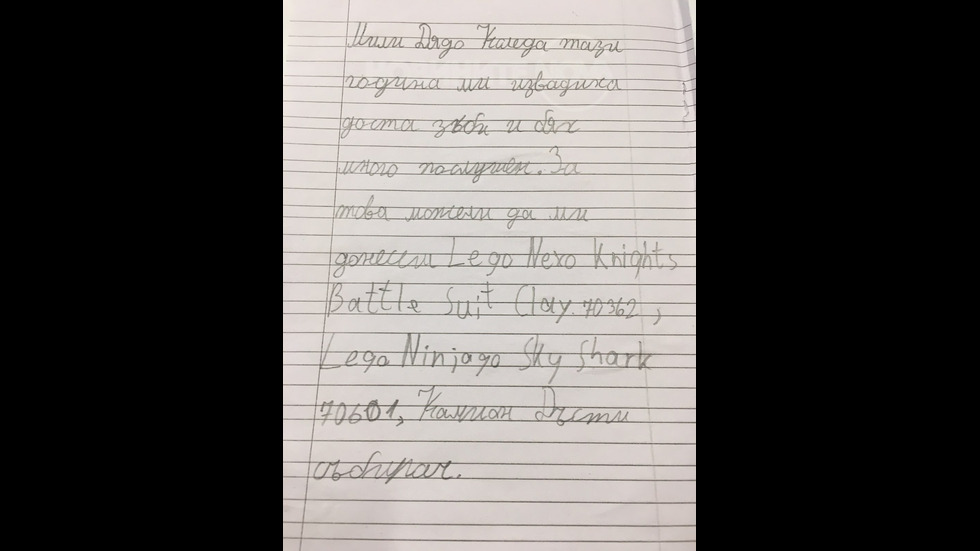 Мили Дядо Коледа тази
година ми извадиха
доста зъби и бях
много послушен. За
това можели да ми
донесеш Lego Nexo Knights
Battle Suit Clay. 70362,
Lego Ninjago Sky Shark
70601, Камион Дъсти
събирач.